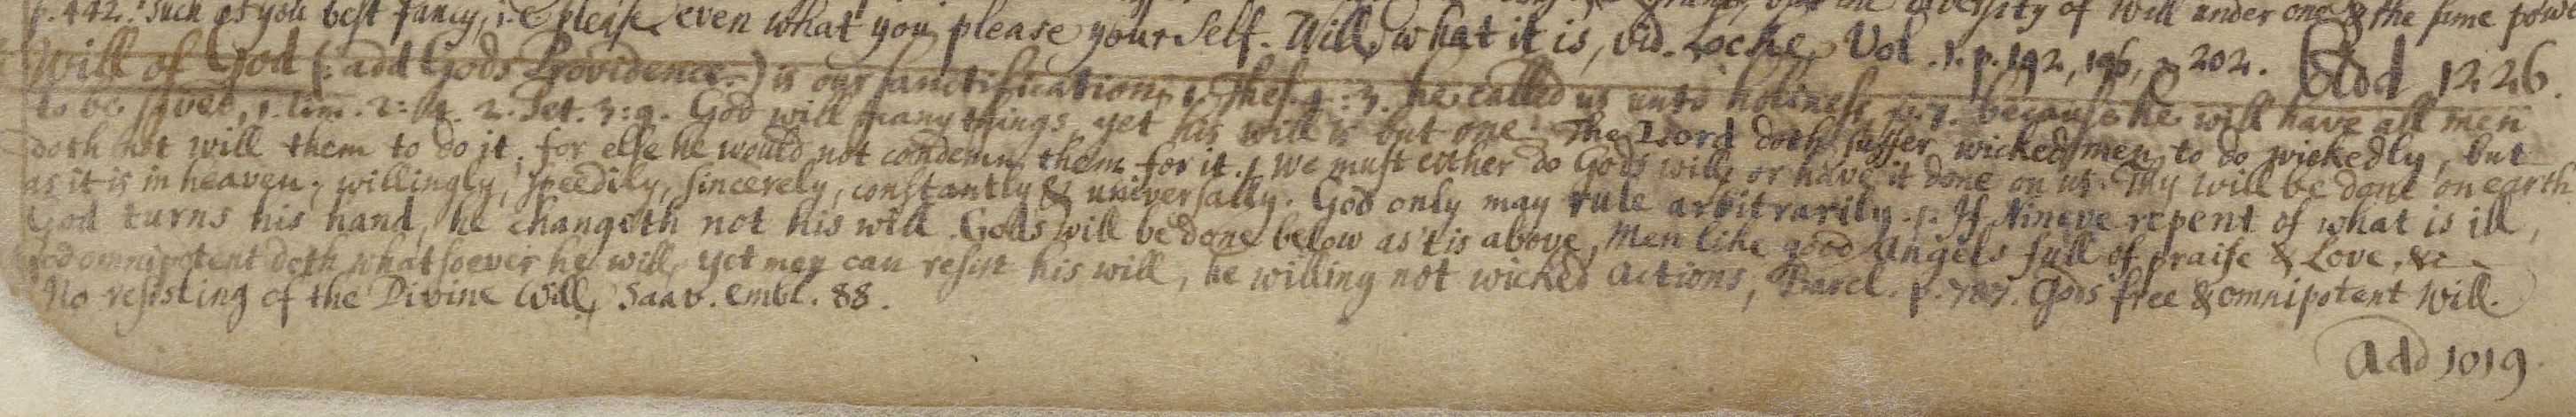 p. 442. Such as you best fancy, i.e please even what you please your Self. Will, what it is, vid. Locke, Vol. 1. p. 192, 196, 202. Add 1226.
of Will under one & the same power
Will of God (: add Gods Providence.) is our sanctification, 1. Thes. 4:3. he called us unto holiness v. 7. because he will have all men
to be saved, 1. Tim. 2:4. 2. Pet. 3:9. God will many things, yet his will is but one. The Lord doth suffer wicked men to do wickedly, but
doth not will them to do it, for else he would not condemn them for it. We must either do Gods will, or have it done on us. Thy will be done on earth
as it is in heaven; willingly, speedily, sincerely, constantly & universally. God only may rule arbitrarily. If Nineve repent of what is ill,
God turns his hand, he changeth not his will. Gods will be done below as 'tis above, Men like good Angels full of praise & Love, &c.
God omnipotent doth whatsoever he will, yet men can resist his will, he willing not wicked actions, Barcl. p. 787. Gods free & omnipotent Will.
No resisting of the Divine Will, Saav. Embl. 88.
Add 1019